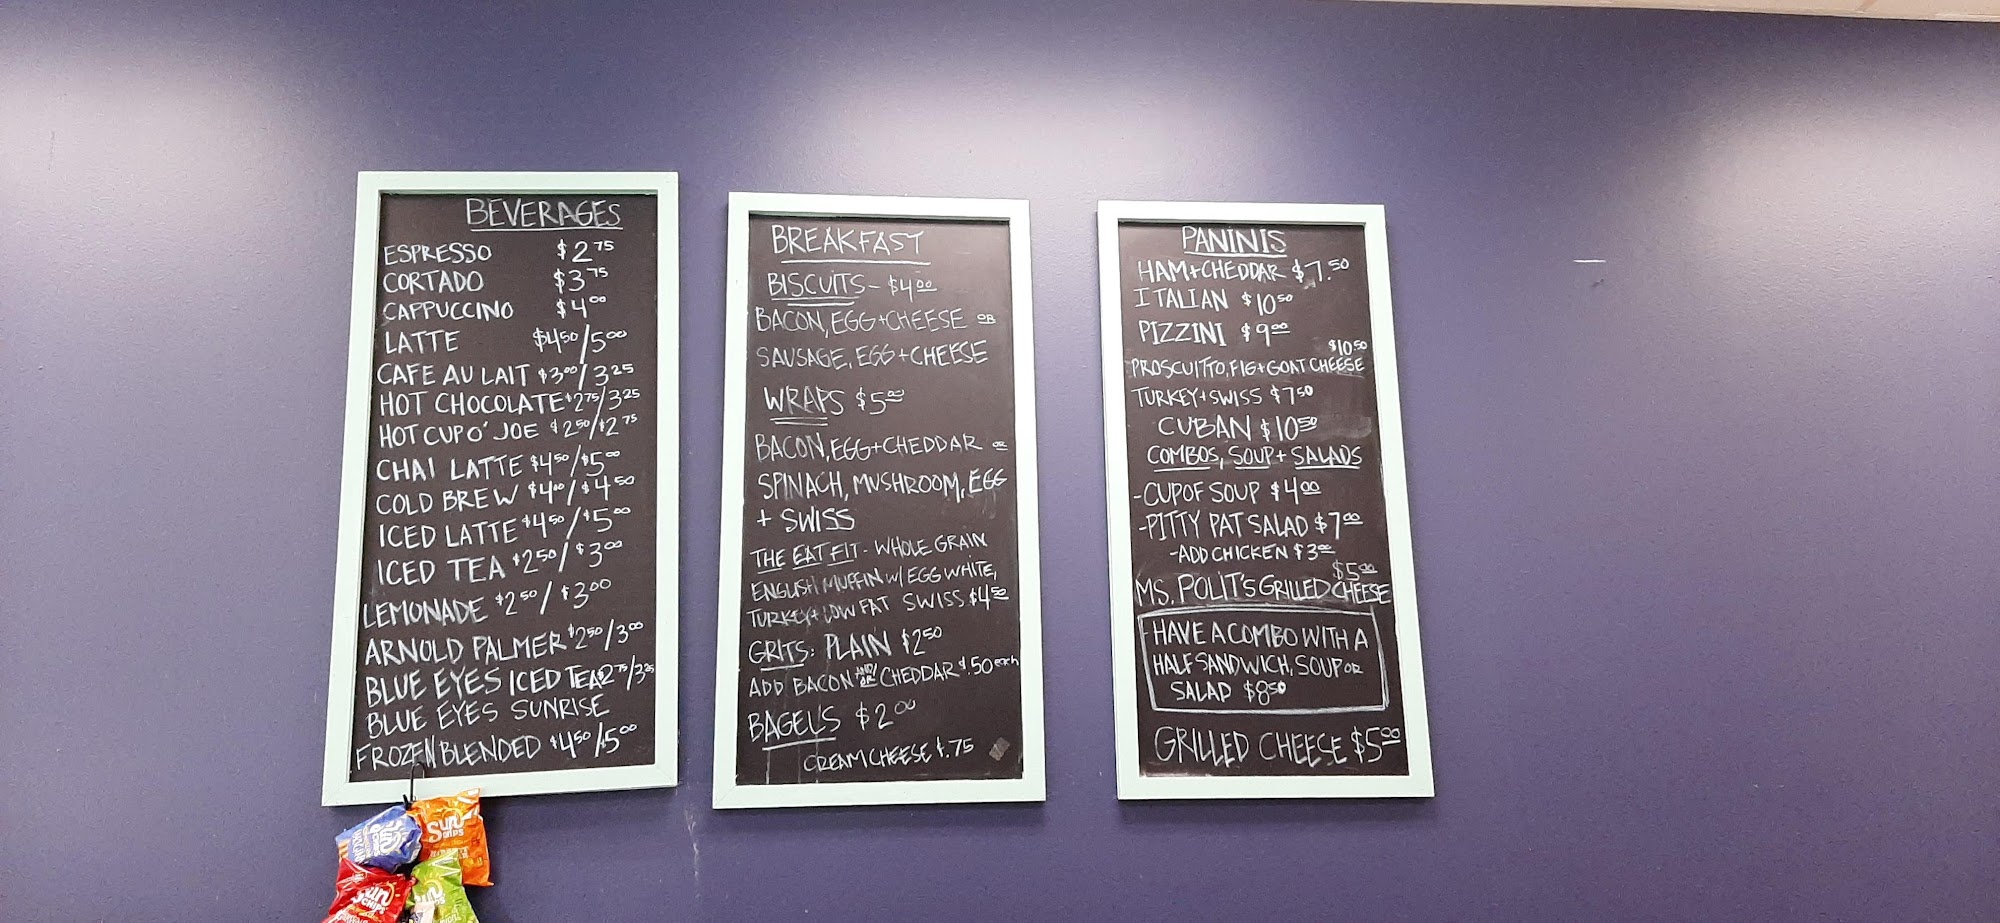 BEVERAGES
ESPRESSO $2.75
CORTADO $3.75
CAPPUCCINO $4.00
LATTE $4.50/5.00
CAFE AU LAIT $3.00/3.25
HOT CHOCOLATE $2.75/3.25
HOT CUP O' JOE $2.50/$2.75
CHAI LATTE $4.50/$5.00
COLD BREW $4.00/$4.50
ICED LATTE $4.50/$5.00
ICED TEA $2.50/$3.00
LEMONADE $2.50/$3.00
ARNOLD PALMER $2.50/3.00
BLUE EYES ICED TEA $2.75/3.25
BLUE EYES SUNRISE
FROZEN BLENDED $4.50/5.00
BREAKFAST
BISCUITS - $4.00
BACON, EGG + CHEESE OR
SAUSAGE, EGG + CHEESE
WRAPS $5.00
BACON, EGG + CHEDDAR OR
SPINACH, MUSHROOM, EGG
+ SWISS
THE EAT FIT - WHOLE GRAIN
ENGLISH MUFFIN W/ EGG WHITE,
TURKEY + LOW FAT SWISS $4.50
GRITS: PLAIN $2.50
ADD BACON AND/OR CHEDDAR $.50 each
BAGELS $2.00
CREAM CHEESE $.75
PANINIS
HAM + CHEDDAR $7.50
ITALIAN $10.50
PIZZINI $9.00
$10.50
PROSCUITTO, FIG + GOAT CHEESE
TURKEY + SWISS $7.50
CUBAN $10.50
COMBOS, SOUP + SALADS
- CUP OF SOUP $4.00
- PITTY PAT SALAD $7.00
- ADD CHICKEN $3.00
$5.00
MS. POLIT'S GRILLED CHEESE
HAVE A COMBO WITH A
HALF SANDWICH, SOUP OR
SALAD $8.50
GRILLED CHEESE $5.00
Sun
CHIPS
Sun
CHIPS